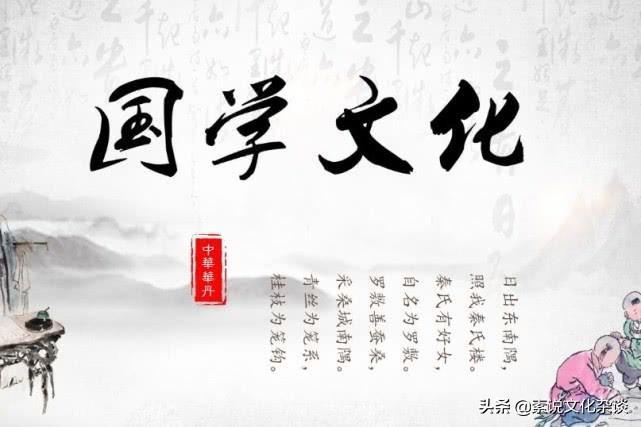 国学文化
中華華丹
日出东南隅，
照我秦氏楼。
秦氏有好女，
自名为罗敷。
罗敷善蚕桑，
采桑城南隅。
青丝为笼系，
桂枝为笼钩。
头条 @素说文化杂谈